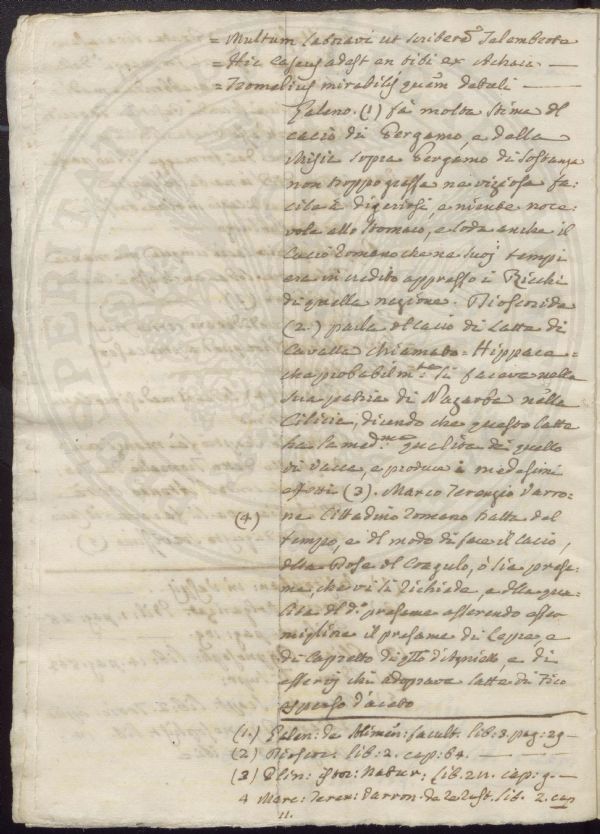 = Multum laboravi ut scriberẽ Salembrota
= Hic caseus adest an tibi ex Achaia —
= Tromelius mirabilis quam dabuli —
Galeno. (1) fà molta stima del
cacio di Pergamo, e della
Misia sopra Pergamo di sostanza
non troppo grassa ne viziosa fa:
cile à digerirsi, e niente noce:
vole allo stomaco, e loda anche il
Cacio Romano che ne suoj tempi
era in credito appresso i Ricchi
di quella nazione. Dioscoride
(2.) parla del cacio di latte di
Cavalla chiamato = Hippace =
che probabilm.te si faceva nella
sua patria di Nazarbe nella
Cilicia, dicendo che questo latte
ha la med.ma qualità di quello
di Vacca, e produce i medesimi
effetti (3). Marco Terenzio Varro:
(4) ne Cittadino Romano tratta del
tempo, e del modo di fare il Cacio,
della Dose del Coagulo, ò sia presa:
me, che vi si richiede, e della qua:
lità del d: presame asserendo esser
migliore il presame di Lepre, e
di Capretto di q.llo d'Agniello, e di
esservi chi adoprava latte di Fico
asperso d'aceto
(1.) Galen: de Alimen: facult. lib. 3. pag: 29 —
(2) Dioscor: lib: 2. cap: 64. —
(3) Plin: istor: Natur: lib. 211. cap: 9. —
4 Marc: Teren: Varron. de Re Rust. lib. 2. cap
11.